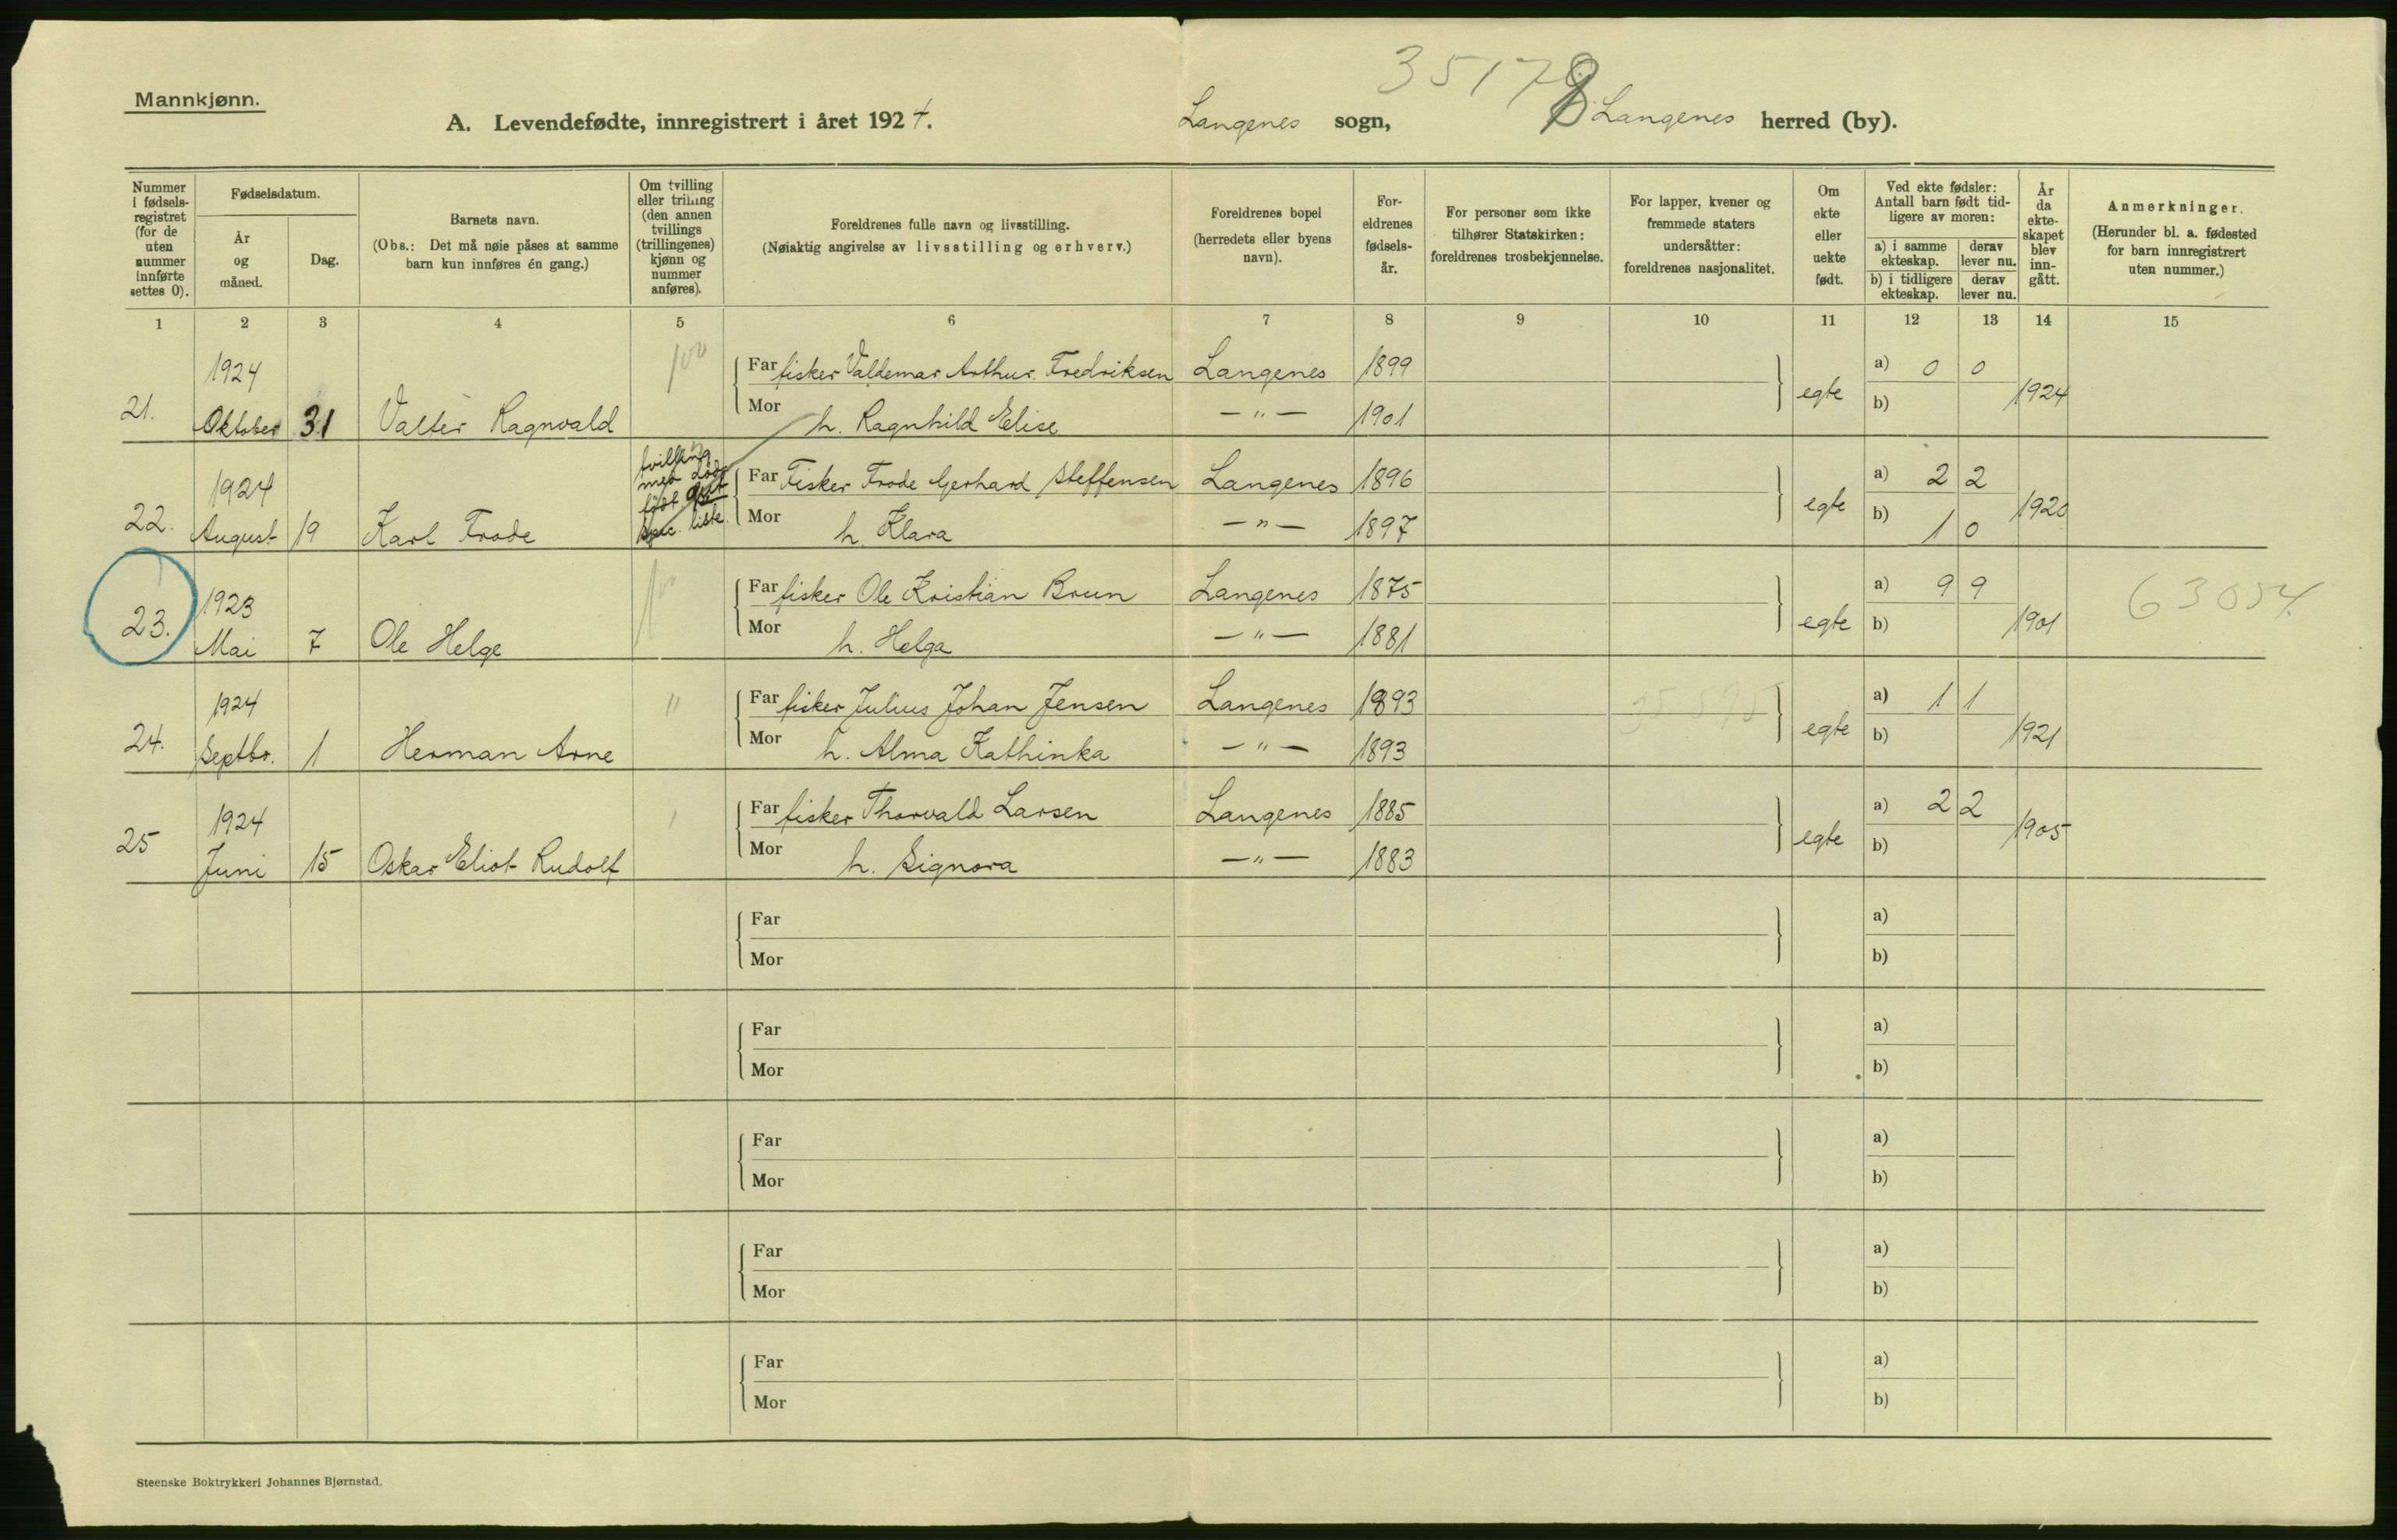 Mannkjønn.
35178
A. Levendefødte, innregistrert i året 1924. Langenes sogn, Langenes herred (by).
Nummer i fødsels-registret (for de uten nummer innførte settes 0).
Fødselsdatum.
År og måned.
Dag.
Barnets navn.
(Obs.: Det må nøie påses at samme barn kun innføres én gang.)
Om tvilling eller trilling (den annen tvillings (trillingenes) kjønn og nummer anføres).
Foreldrenes fulle navn og livsstilling.
(Nøiaktig angivelse av livsstilling og erhverv.)
Foreldrenes bopel (herredets eller byens navn).
For-eldrenes fødsels-år.
For personer som ikke tilhører Statskirken: foreldrenes trosbekjennelse.
For lapper, kvener og fremmede staters undersåtter: foreldrenes nasjonalitet.
Om ekte eller uekte født.
Ved ekte fødsler: Antall barn født tid-ligere av moren:
a) i samme ekteskap. derav lever nu.
b) i tidligere ekteskap. derav lever nu.
År da ekte-skapet blev inn-gått.
Anmerkninger.
(Herunder bl. a. fødested for barn innregistrert uten nummer.)
1 2 3 4 5 6 7 8 9 10 11 12 13 14 15
1924 Far fisker Valdemar Arthur Fredriksen Langenes 1899 a) 0 0
21. Oktober 31 Valter Ragnvald Mor h. Ragnhild Elise — " — 1901 egte b) 1924
1924 tvilling med døds født Far Fisker Frode Gerhard Steffensen Langenes 1896 a) 2 2
22. August 19 Karl Frode spec. liste. Mor h. Klara — " — 1897 egte b) 1 0 1920
1923 Far fisker Ole Kristian Brun Langenes 1875 a) 9 9 63054
23. Mai 7 Ole Helge Mor h. Helga — " — 1881 egte b) 1901
1924 " Far fisker Julius Johan Jensen Langenes 1893 35595 a) 1 1
24. Septbr. 1 Herman Arne Mor h. Alma Kathinka — " — 1893 egte b) 1921
1924 Far fisker Thorvald Larsen Langenes 1885 a) 2 2
25 Juni 15 Oskar Eliot Rudolf Mor h. Signora — " — 1883 egte b) 1905
Far a)
Mor b)
Far a)
Mor b)
Far a)
Mor b)
Far a)
Mor b)
Far a)
Mor b)
Steenske Boktrykkeri Johannes Bjørnstad.